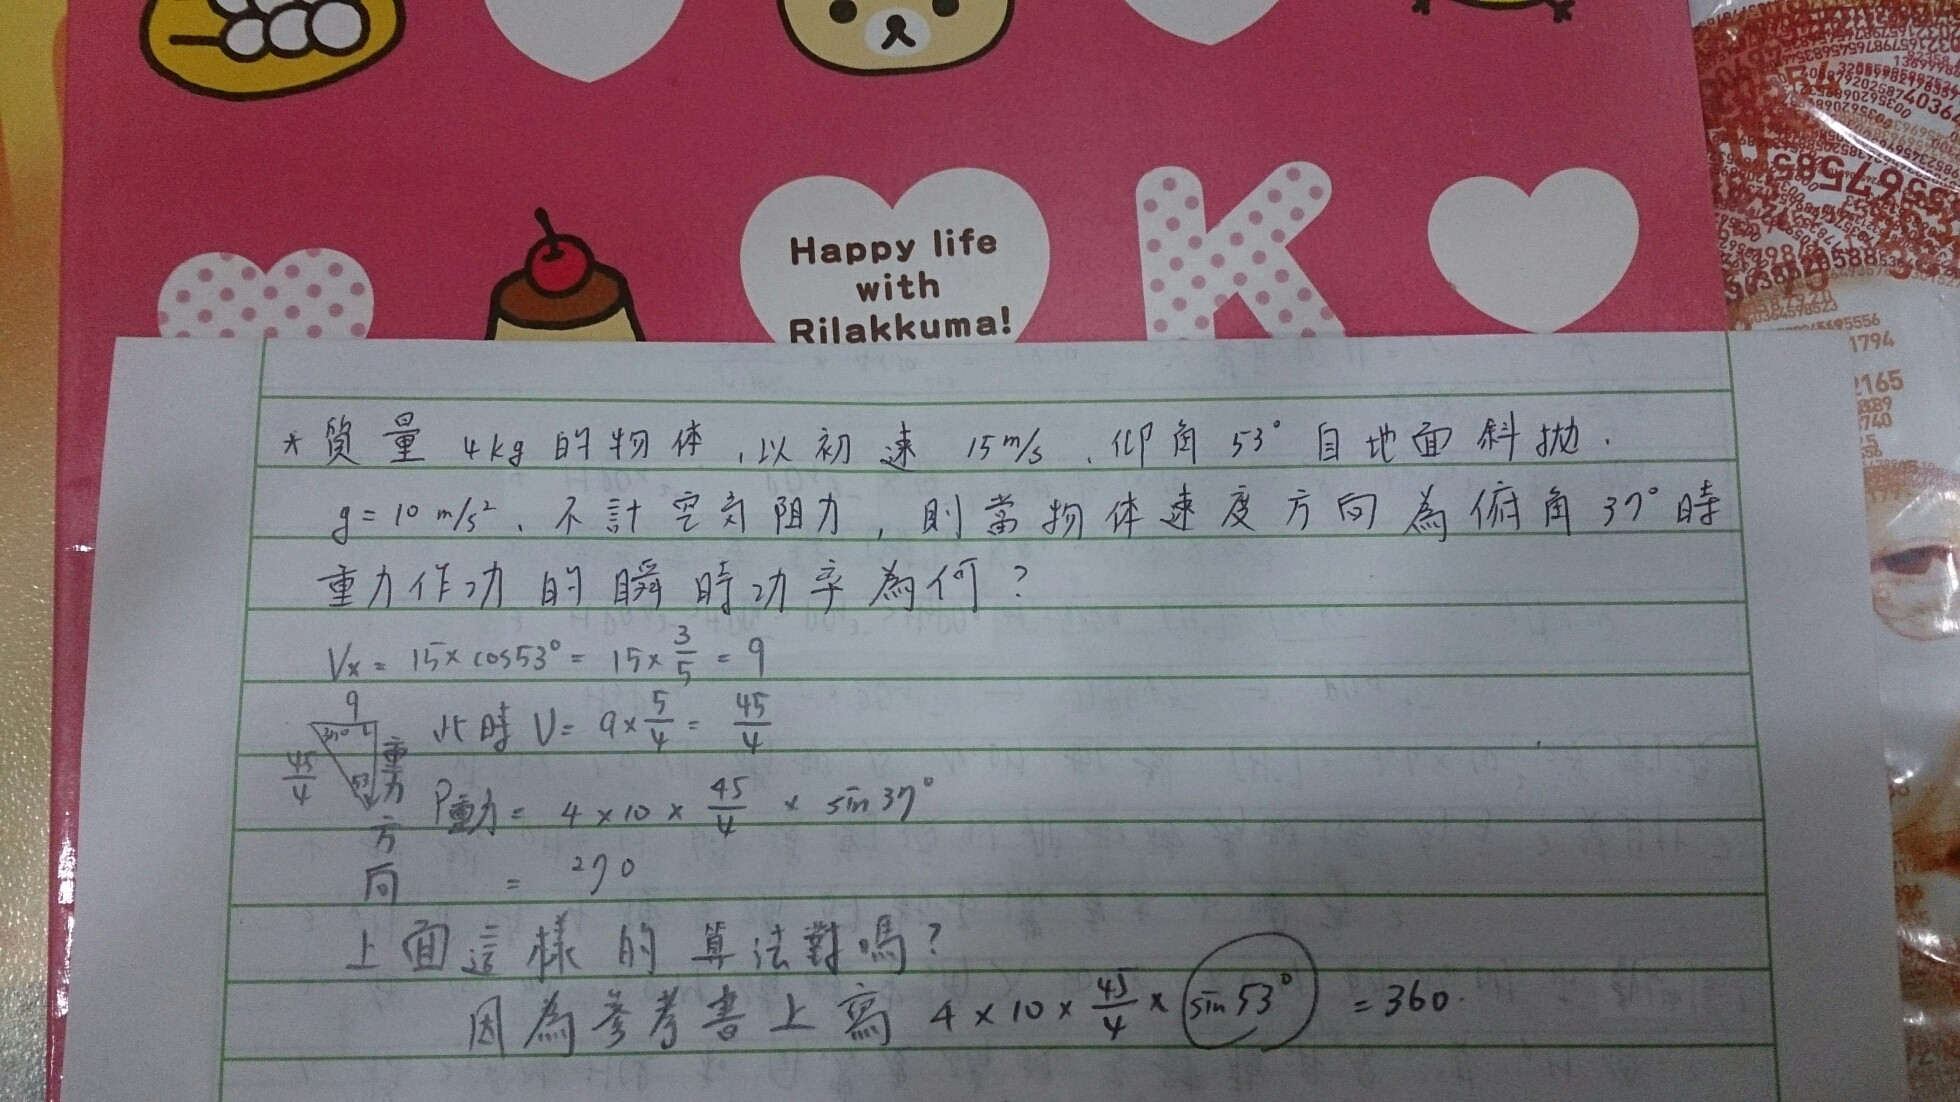 Happy life
with
Rilakkuma!
K
*質量 4kg 的物体,以初速 15m/s、仰角53°自地面斜拋.
g=10 m/s²、不計空気阻力,則當物体速度方向為俯角37°時
重力作功的瞬時功率為何?
Vx = 15×cos53° = 15×3/5 = 9
9
37°
45/4
53
重力方向
此時 V= 9×5/4 = 45/4
P重力= 4×10×45/4 × sin37°
= 270
上面這樣的算法對嗎?
因為參考書上寫 4×10×45/4×sin53° =360.
1794
2165